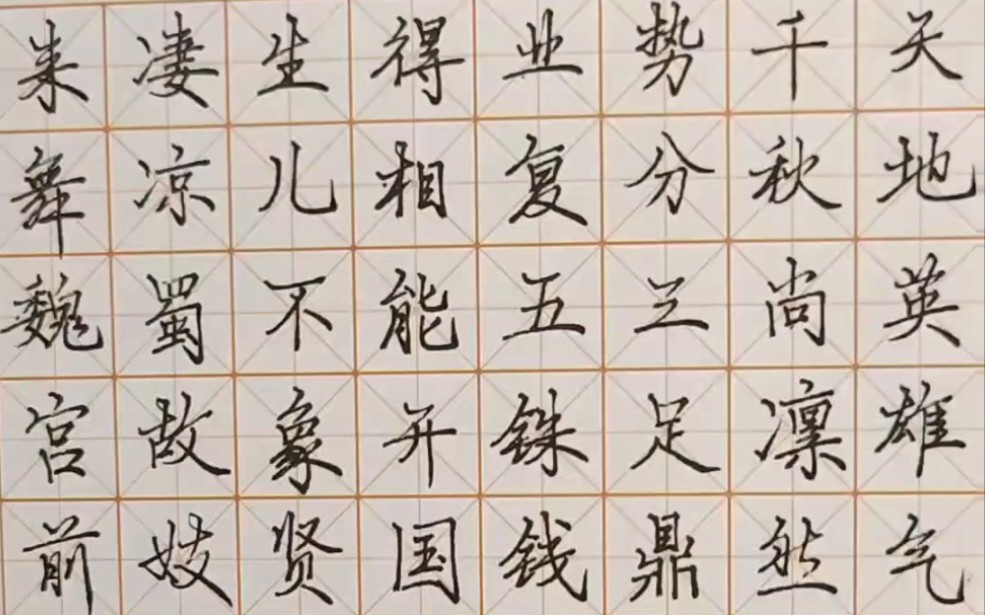 天地英雄气
千秋尚凛然
势分三足鼎
业复五铢钱
得相能开国
生儿不象贤
凄凉蜀故妓
来舞魏宫前